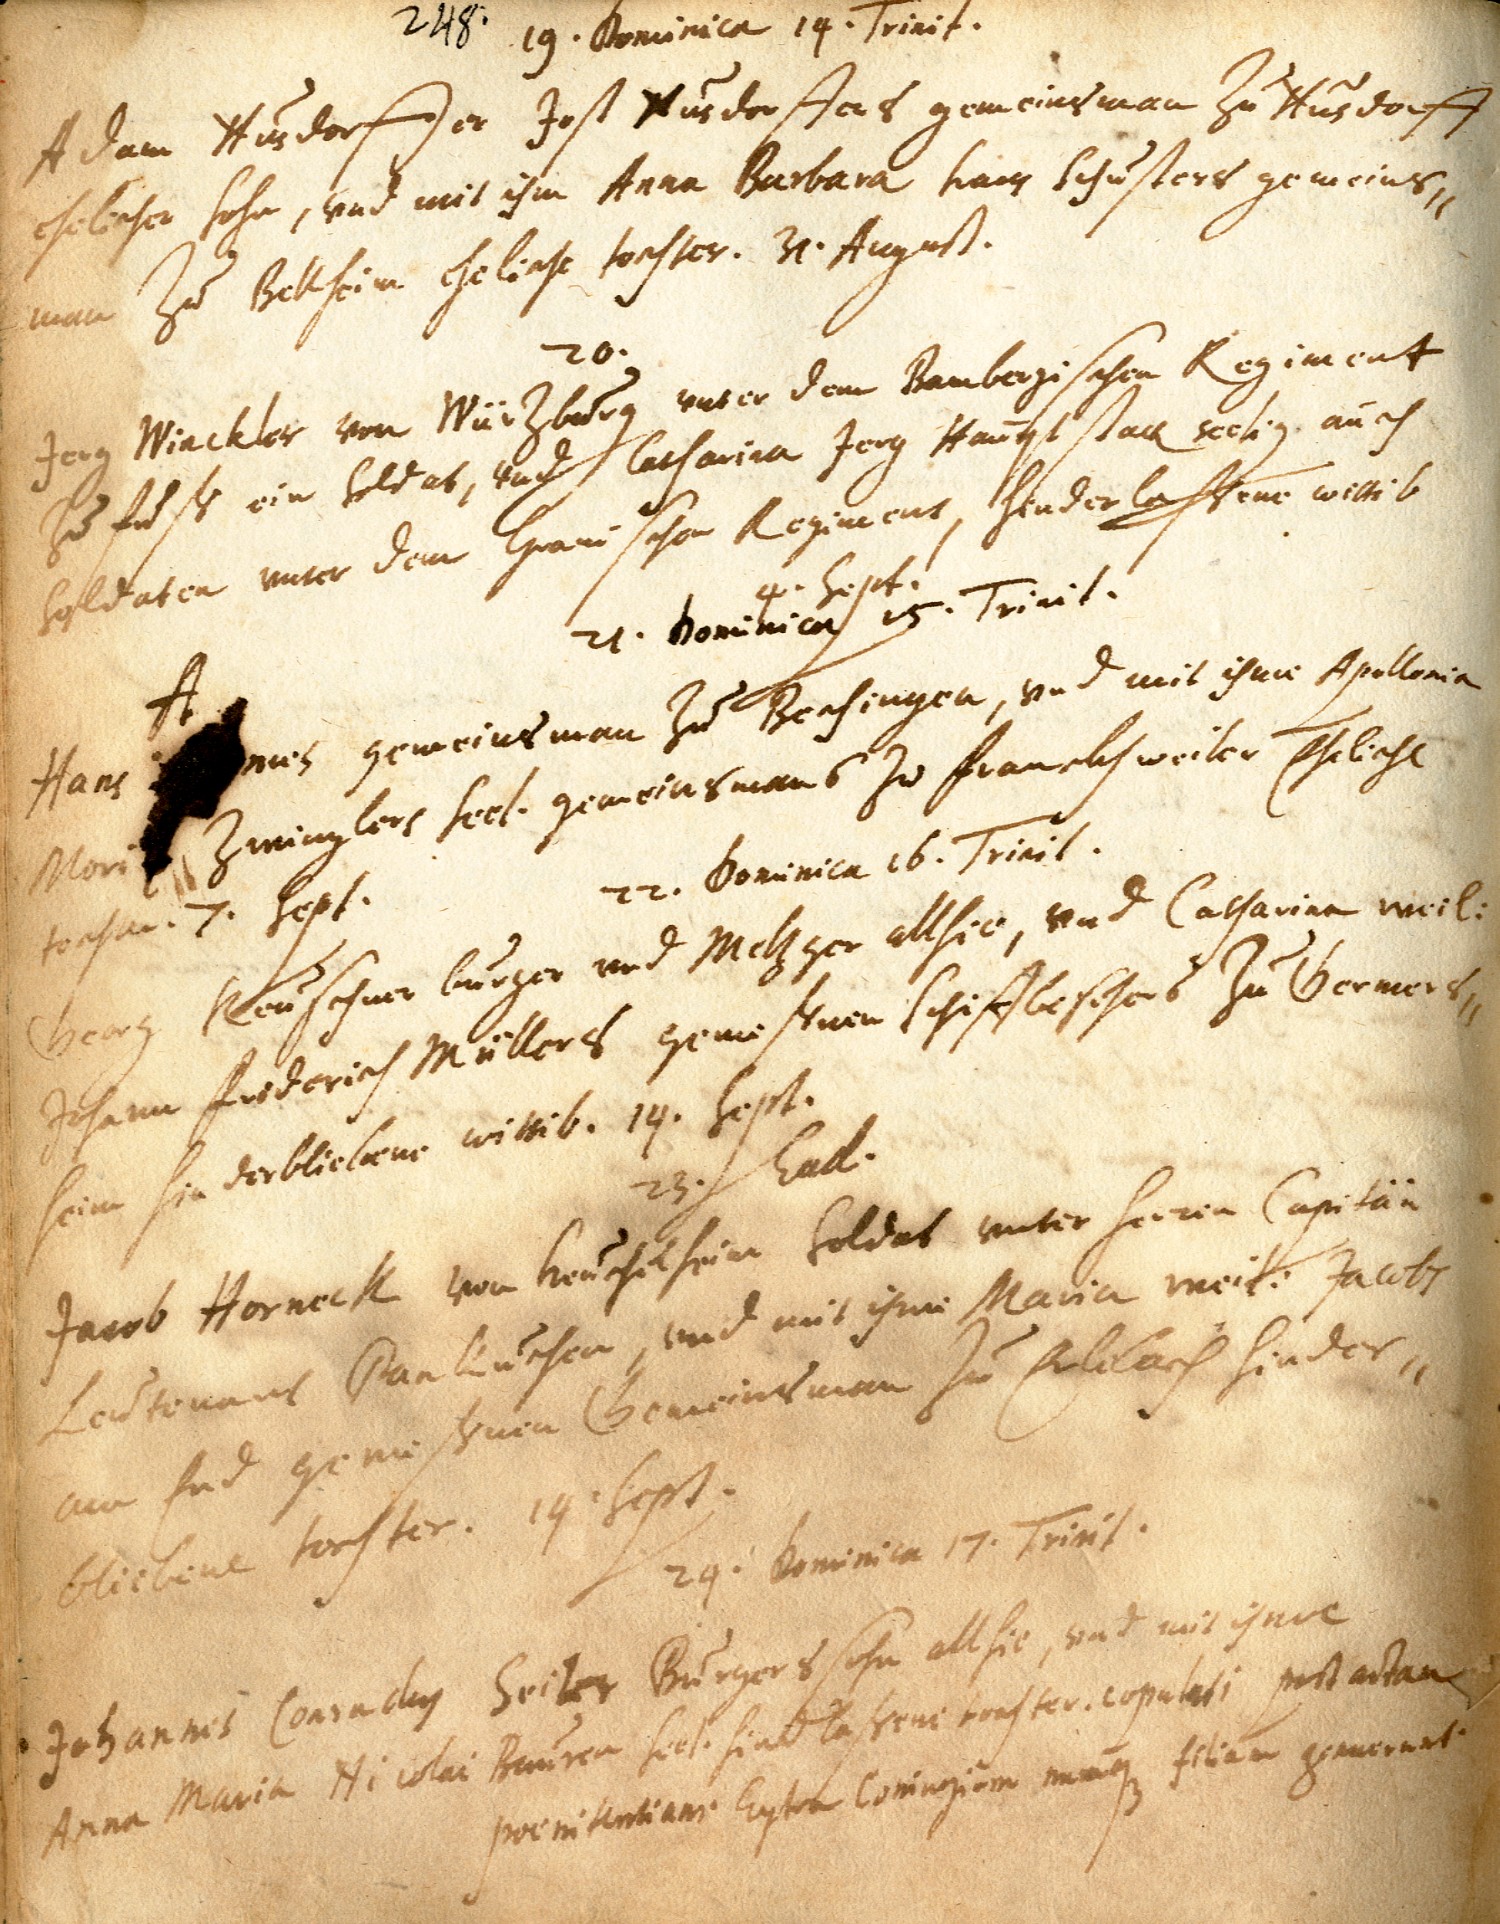 248. 19. Dominica 14. Trinit.
Adam Husdorffer Jost Husdorffers gemeinsman Zu Husdorff
ehelicher sohn, vnd mit ihm Anna Barbara hans Schusters gemeins„
man Zu Bellheim eheliche tochter. 31. August.
20.
Jerg Winckler von Würzburg vnter dem Bambergischen Regiment
Zu fuß ein Soldat, vnd Catharina Jerg seelig auch
Soldaten vnter dem Regiment, hinderlaßene wittib
4. Sept.
21. Dominica 15. Trinit.
A
Hans gemeinsman Zu, vnd mit ihme Apollonia
Zwinglers seel. gemeinsmans Zu Franckhweiler Eheliche
7. Sept.
22. Dominica 16. Trinit.
Georg Keuschner burger vnd Metzger allhie, vnd Catharina weil:
Johann Friderich Müllers geweßnen Zu Germers„
heim hinderbliebene wittib. 14. Sept.
23. Ead.
Jacob Horneck von heuchelheim Soldat vnter herren Capitän
Leutenant, vnd mit ihme Maria weil: Jacobs
am End geweßnen Gemeinsman Zu hinder„
bliebene tochter. 14. Sept.
24. Dominica 17. Trinit.
Johannes Seiler Burgerssohn allhie, vnd mit ihme
Anna Maria Nicolai Bauren seel. tochter. copulati post actam
poenitentiam Extra Coniugium filiam genuerunt